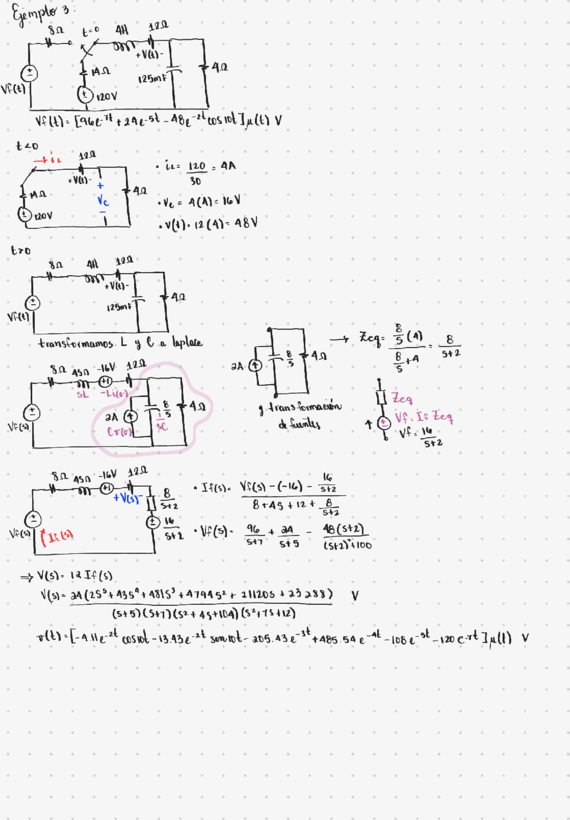 Ejemplo 3:
8Ω t=0 4H 12Ω
+V(t)-
14Ω 125mF 4Ω
Vf(t) 120V
Vf(t) = [96e^-7t + 24e^-5t - 48e^-2t cos10t] μ(t) V
t<0
iL 12Ω
+V(t)-
14Ω + Vc - 4Ω
120V
• iL = 120/30 = 4A
• Vc = 4(4) = 16V
• V(t) = 12(4) = 48V
t>0
8Ω 4H 12Ω
+V(t)-
125mF 4Ω
Vf(t)
transformamos L y C a laplace
8Ω 4SΩ -16V 12Ω
SL -Li(0)
2A 8/S 4Ω
Cv(0) 1/SC
Vf(s)
2A 8/S 4Ω
y transformación
de fuentes
Zeq = 8/S (4) / 8/S + 4 = 8/S+2
Zeq
Vf = If Zeq
Vf = 16/S+2
8Ω 4SΩ -16V 12Ω
+V(s)- 8/S+2
Vf(s) If(s) 16/S+2
• If(s) = Vf(s) - (-16) - 16/S+2 / 8 + 4S + 12 + 8/S+2
• Vf(s) = 96/S+7 + 24/S+5 - 48(S+2)/(S+2)²+100
⇒ V(s) = 12 If(s)
V(s) = 24(2S^5 + 43S^4 + 481S^3 + 4794S^2 + 21120S + 23288) / (S+5)(S+7)(S²+4S+104)(S²+7S+12) V
v(t) = [-4.11e^-2t cos10t - 13.43e^-2t sen10t - 205.43e^-3t + 485.54e^-4t - 108e^-5t - 120e^-7t] μ(t) V